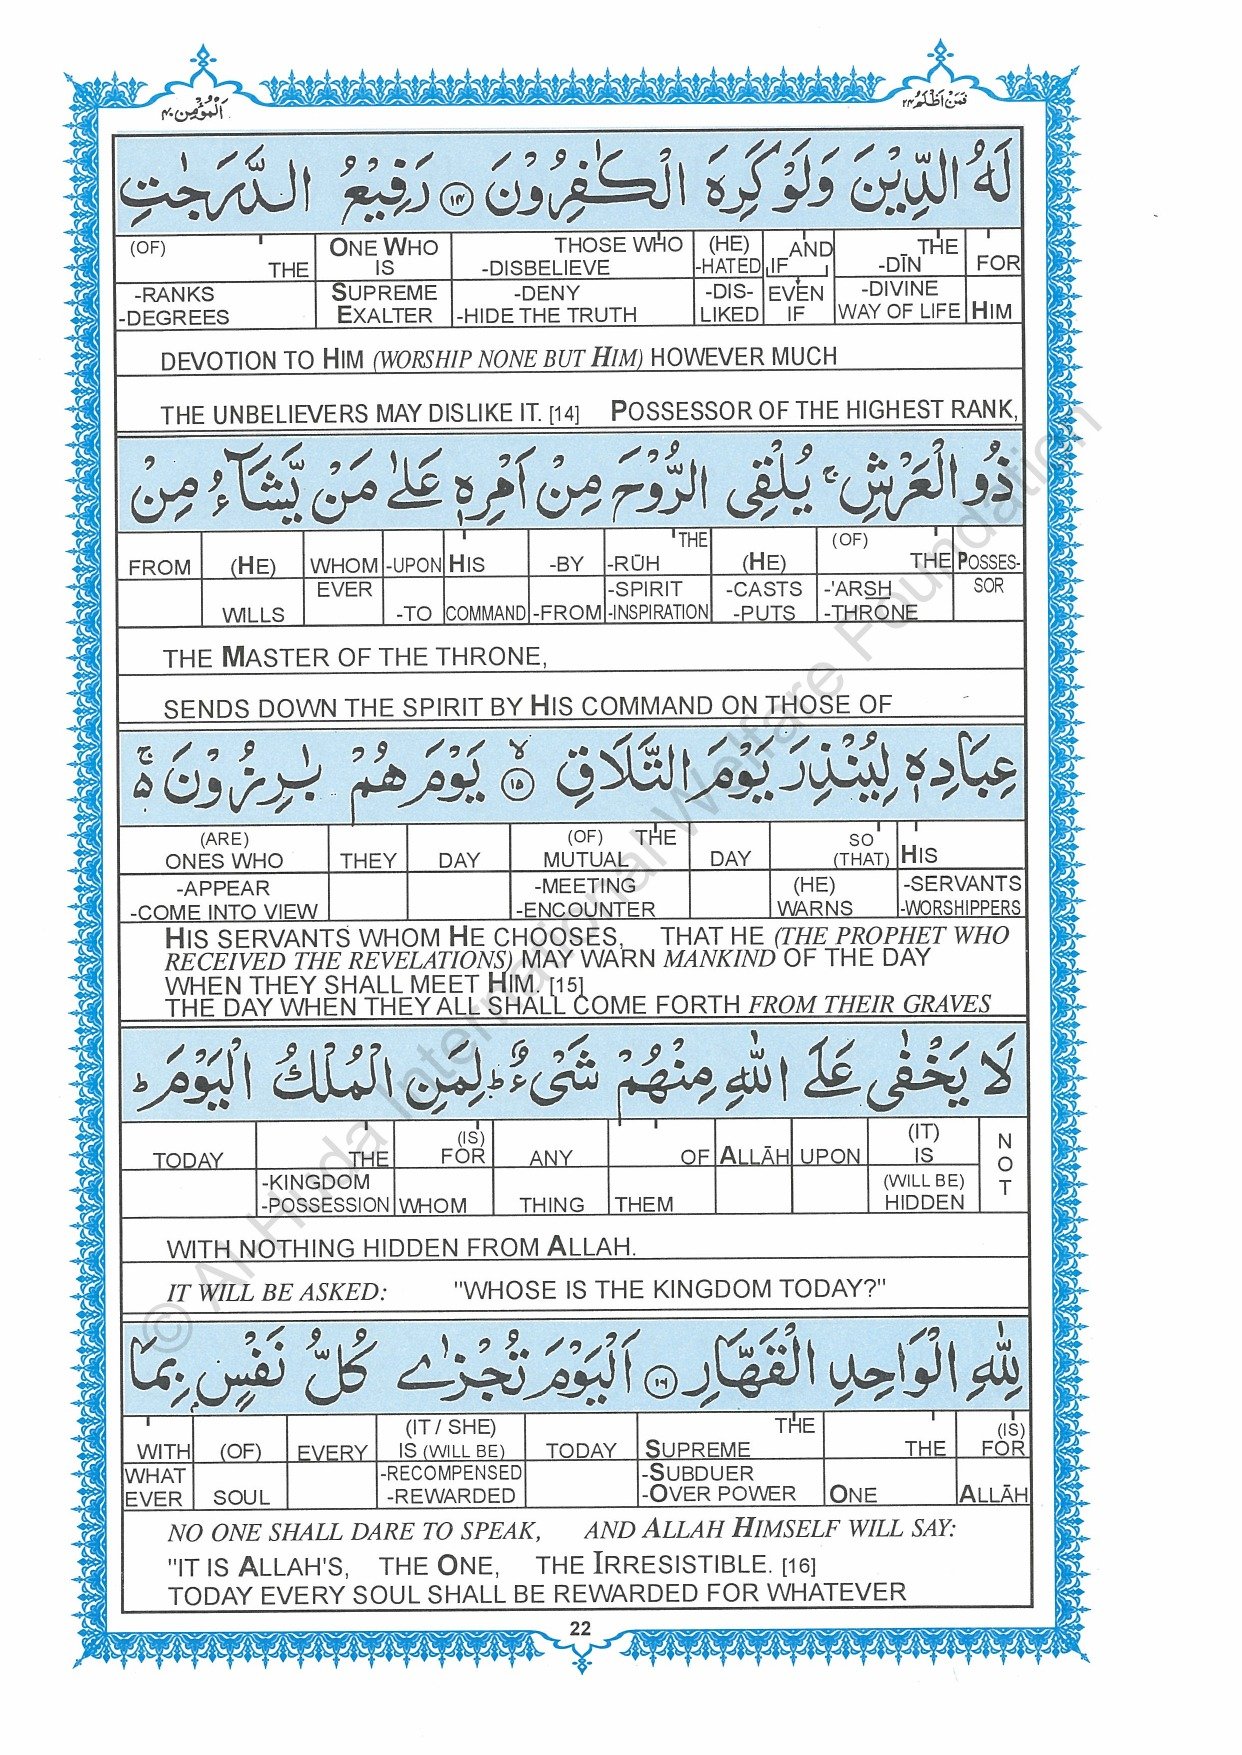 اَلْمُؤْمِن ٤٠
فَمَنْ اَظْلَمُ ٢٤
لَهُ الدِّيْنَ وَلَوْ كَرِهَ الْكٰفِرُوْنَ ١٤ رَفِيْعُ الدَّرَجٰتِ
(OF) THE ONE WHO IS THOSE WHO -DISBELIEVE (HE) -HATED AND IF THE -DĪN FOR
-RANKS -DEGREES SUPREME EXALTER -DENY -HIDE THE TRUTH -DIS-LIKED EVEN IF -DIVINE WAY OF LIFE HIM
DEVOTION TO HIM (WORSHIP NONE BUT HIM) HOWEVER MUCH
THE UNBELIEVERS MAY DISLIKE IT. [14] POSSESSOR OF THE HIGHEST RANK,
ذُو الْعَرْشِ ۚ يُلْقِى الرُّوْحَ مِنْ اَمْرِهٖ عَلٰى مَنْ يَّشَآءُ مِنْ
FROM (HE) WHOM -UPON HIS -BY THE -RŪH (HE) (OF) THE POSSES-
WILLS EVER -TO COMMAND -FROM -SPIRIT -INSPIRATION -CASTS -PUTS -'ARSH -THRONE SOR
THE MASTER OF THE THRONE,
SENDS DOWN THE SPIRIT BY HIS COMMAND ON THOSE OF
عِبَادِهٖ لِيُنْذِرَ يَوْمَ التَّلَاقِ ۙ ١٥ يَوْمَ هُمْ بٰرِزُوْنَ ۚ۬
(ARE) ONES WHO THEY DAY (OF) THE MUTUAL DAY SO (THAT) HIS
-APPEAR -COME INTO VIEW -MEETING -ENCOUNTER (HE) WARNS -SERVANTS -WORSHIPPERS
HIS SERVANTS WHOM HE CHOOSES, THAT HE (THE PROPHET WHO
RECEIVED THE REVELATIONS) MAY WARN MANKIND OF THE DAY
WHEN THEY SHALL MEET HIM. [15]
THE DAY WHEN THEY ALL SHALL COME FORTH FROM THEIR GRAVES
لَا يَخْفٰى عَلَى اللّٰهِ مِنْهُمْ شَىْءٌ ؕ لِمَنِ الْمُلْكُ الْيَوْمَ ؕ
TODAY THE (IS) FOR ANY OF ALLĀH UPON (IT) IS NOT
-KINGDOM -POSSESSION WHOM THING THEM (WILL BE) HIDDEN
WITH NOTHING HIDDEN FROM ALLAH.
IT WILL BE ASKED: "WHOSE IS THE KINGDOM TODAY?"
لِلّٰهِ الْوَاحِدِ الْقَهَّارِ ١٦ اَلْيَوْمَ تُجْزٰى كُلُّ نَفْسٍۭ بِمَا
WITH (OF) EVERY (IT / SHE) IS (WILL BE) TODAY THE SUPREME THE (IS) FOR
WHAT EVER SOUL -RECOMPENSED -REWARDED -SUBDUER -OVER POWER ONE ALLĀH
NO ONE SHALL DARE TO SPEAK, AND ALLAH HIMSELF WILL SAY:
"IT IS ALLAH'S, THE ONE, THE IRRESISTIBLE. [16]
TODAY EVERY SOUL SHALL BE REWARDED FOR WHATEVER
22
© Al Huda International Welfare Foundation